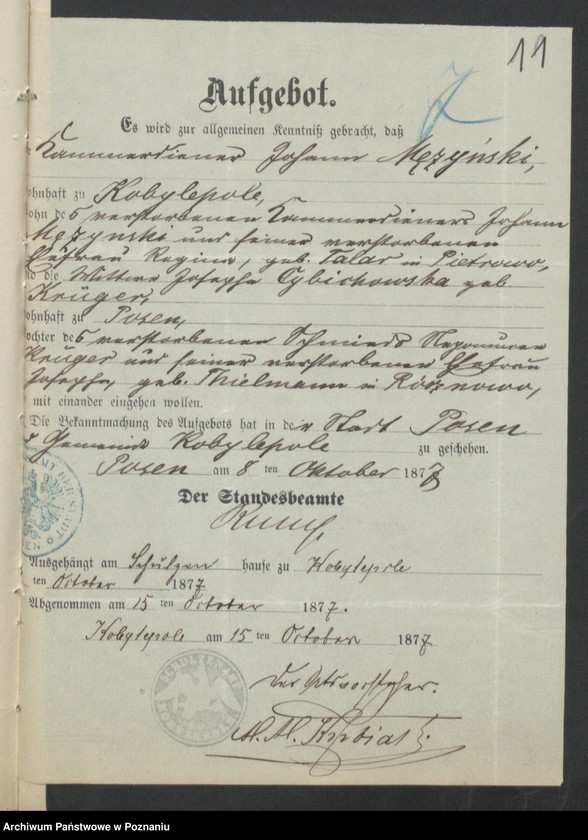 11
Aufgebot.
Es wird zur allgemeinen Kenntniß gebracht, daß
Kammerdiener Johann Męzyński,
ohnhaft zu Kobylepole,
ohn des verstorbenen Kammerdieners Johann
Męzynski und seiner verstorbenen
Ehefrau Regina, geb. Talar in Pietrowo,
nd die Wittwe Josepha Cybichowska geb.
Krüger,
ohnhaft zu Posen,
ochter des verstorbenen Schmieds Nepomucen
Krüger und seiner verstorbenen Ehefrau
Josepha, geb. Thielmann in Roznowo,
mit einander eingehen wollen.
Die Bekanntmachung des Aufgebots hat in der Stadt Posen
Gemeinde Kobylepole zu geschehen.
Posen am 8 ten Oktober 1877
Der Standesbeamte
Ausgehängt am Schulzen hause zu Kobylepole
ten October 1877
Abgenommen am 15 ten October 1877.
Kobylepole am 15 ten October 1877
Der Ortsvorsteher.
Archiwum Państwowe w Poznaniu